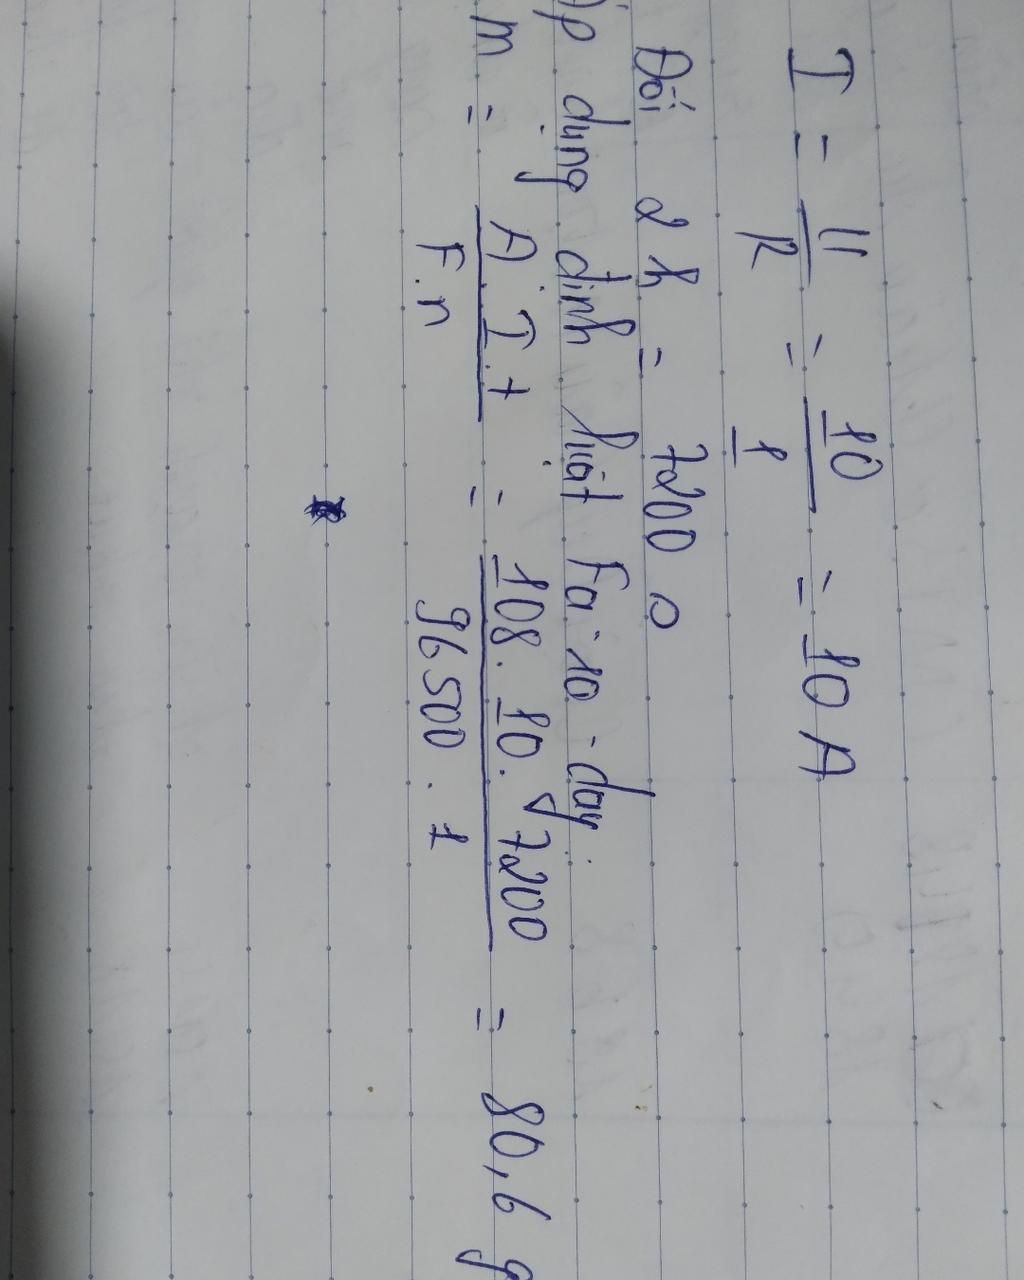 I = U/R = 10/1 = 10 A
Đổi 2 h = 7200 s
Áp dụng định luật Fa-ra-day:
m = A.I.t/F.n = 108.10.7200/96500.1 = 80,6 g